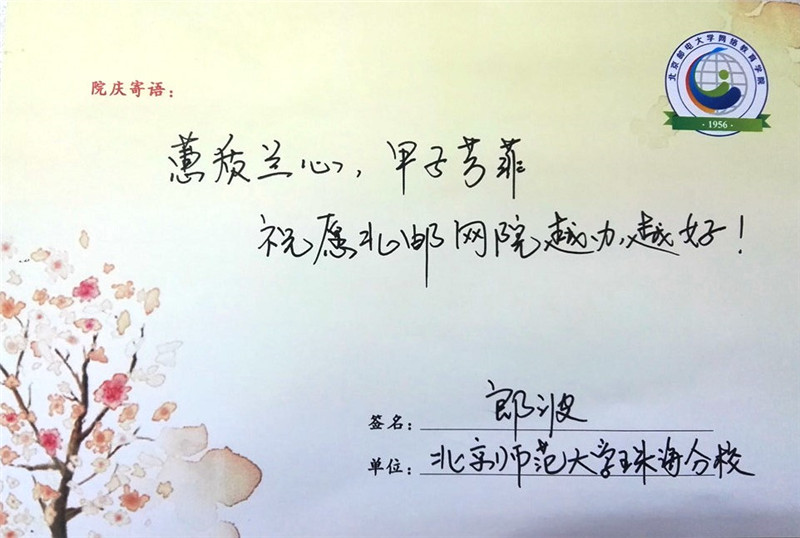 北京邮电大学网络教育学院
·1956·
院庆寄语：
蕙质兰心，甲子芳菲
祝愿北邮网院越办越好！
签名：郎波
单位：北京师范大学珠海分校